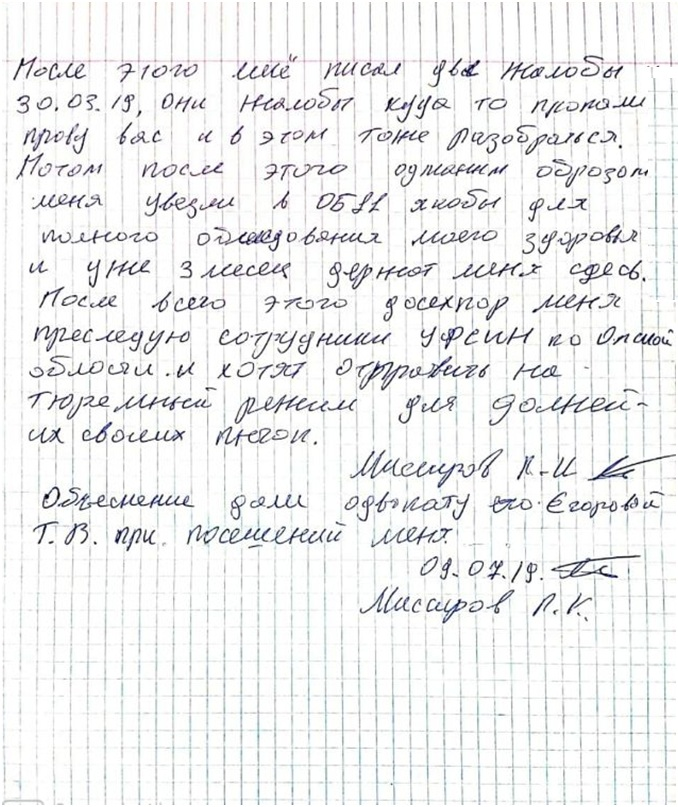 После этого ишё писал две жалобы
30.03.19, они жалобы куда то пропали
прошу вас и в этом тоже разобраться.
Потом после этого одманым оброзом
меня увезли в ОБ11 якобы для
полного обследования моего здоровья
и уже 3 месец держот меня сдесь.
После всего этого досехпор меня
преследую сотрудники УФСИН по Омской
области. и хотят отправить на
тюремный режим для долней-
их своих пыток.
Мисиров Н-И
Объеснение дали одвокату Егоровой
Т.В. при посещений меня.
09.07.19.
Мисиров